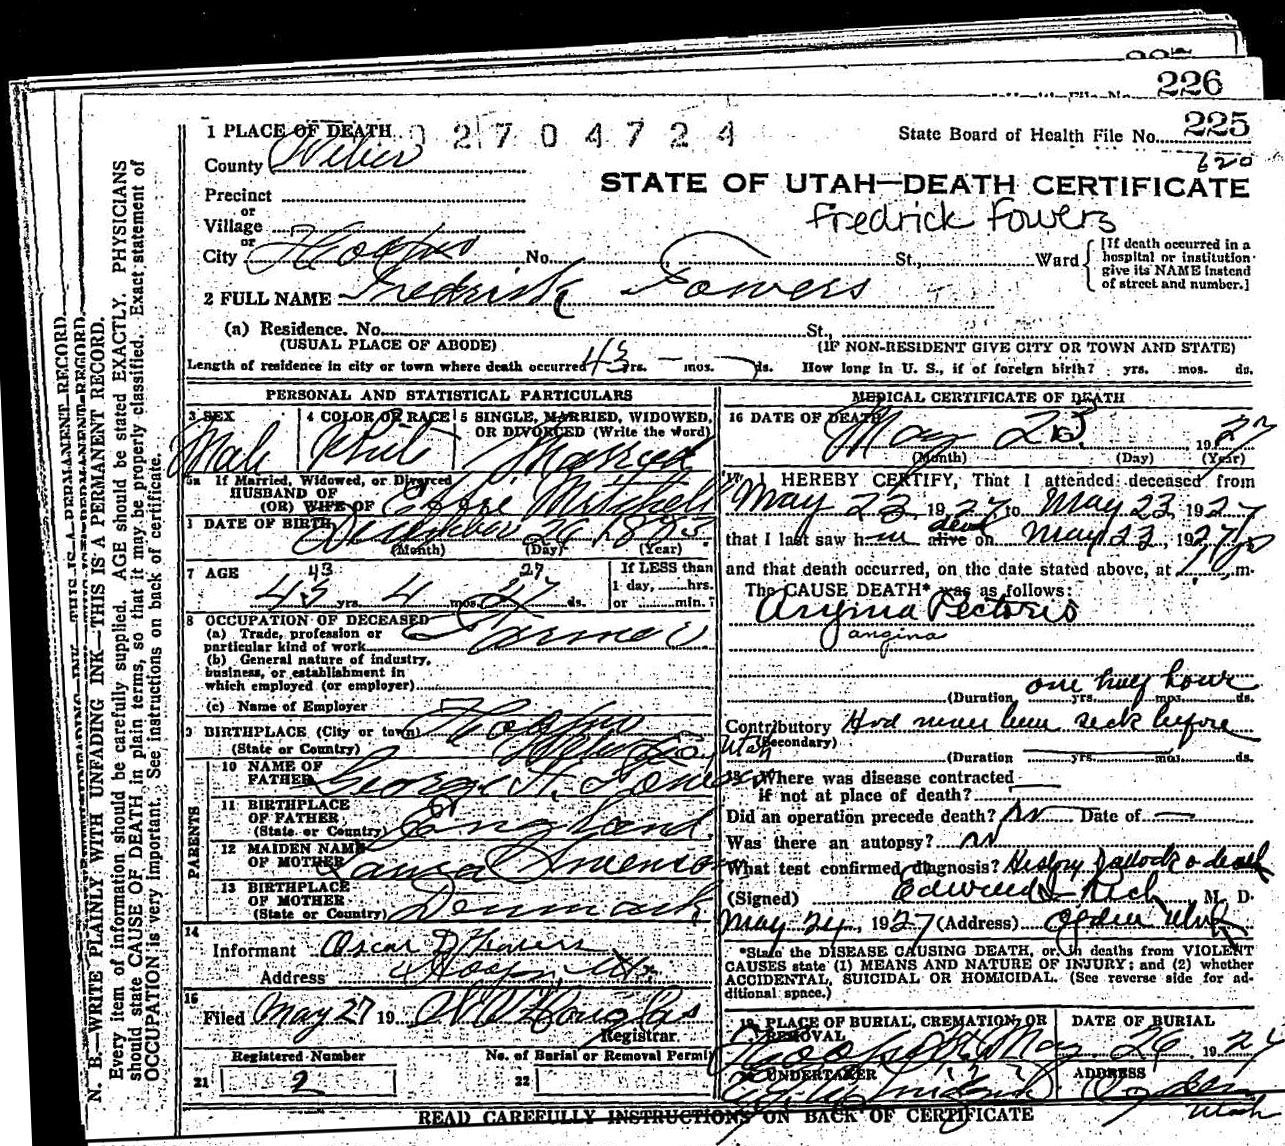 226
1 PLACE OF DEATH 02704724 State Board of Health File No. 225
620
County Weber
STATE OF UTAH—DEATH CERTIFICATE
Precinct
or
Village
Fredrick Fowers
or
City Hooper No. St., Ward
[If death occurred in a
hospital or institution
give its NAME instead
of street and number.]
2 FULL NAME Fredrick Fowers
(a) Residence. No. St.,
(USUAL PLACE OF ABODE) (IF NON-RESIDENT GIVE CITY OR TOWN AND STATE)
Length of residence in city or town where death occurred 43 yrs. — mos. — ds. How long in U. S., if of foreign birth? yrs. mos. ds.
PERSONAL AND STATISTICAL PARTICULARS
3 SEX
Male
4 COLOR OR RACE
White
5 SINGLE, MARRIED, WIDOWED,
OR DIVORCED (Write the word)
Married
5a If Married, Widowed, or Divorced
HUSBAND OF
(OR) WIFE OF Effie Mitchell
DATE OF BIRTH December 26, 1883
(Month) (Day) (Year)
7 AGE 43 27
43 yrs. 4 mos. 27 ds.
If LESS than
1 day, hrs.
or min.
8 OCCUPATION OF DECEASED
(a) Trade, profession or
particular kind of work Farmer
(b) General nature of industry,
business, or establishment in
which employed (or employer)
(c) Name of Employer
9 BIRTHPLACE (City or town) Hooper
(State or Country) Utah
PARENTS
10 NAME OF
FATHER George H. Fowers
11 BIRTHPLACE
OF FATHER
(State or Country) England
12 MAIDEN NAME
OF MOTHER
13 BIRTHPLACE
OF MOTHER
(State or Country) Denmark
14
Informant Oscar D Fowers
Address Hooper, Utah
15
Filed May 27 19
Registrar.
Registered Number No. of Burial or Removal Permit
21 2 22
MEDICAL CERTIFICATE OF DEATH
16 DATE OF DEATH
May 23 1927
(Month) (Day) (Year)
17 I HEREBY CERTIFY, That I attended deceased from
May 23 1927 to May 23, 1927
dead
that I last saw him alive on May 23, 1927
and that death occurred, on the date stated above, at m.
The CAUSE DEATH* was as follows:
Angina Pectoris
angina
one half hour
(Duration yrs. mos. ds.
Contributory Had never been sick before
(Secondary)
(Duration yrs. mos. ds.
18 Where was disease contracted
if not at place of death?
Did an operation precede death? No Date of —
Was there an autopsy? No
What test confirmed diagnosis? History of attack & death
(Signed) Edward I Rich M. D.
May 24, 1927 (Address) Ogden Utah
*State the DISEASE CAUSING DEATH, or, in deaths from VIOLENT
CAUSES state (1) MEANS AND NATURE OF INJURY; and (2) whether
ACCIDENTAL, SUICIDAL OR HOMICIDAL. (See reverse side for ad-
ditional space.)
19 PLACE OF BURIAL, CREMATION, OR
REMOVAL
Hooper
DATE OF BURIAL
May 26 1927
20 UNDERTAKER
ADDRESS
Ogden
Utah
READ CAREFULLY INSTRUCTIONS ON BACK OF CERTIFICATE
N. B.—WRITE PLAINLY WITH UNFADING INK—THIS IS A PERMANENT RECORD.
Every item of information should be carefully supplied. AGE should be stated EXACTLY. PHYSICIANS
should state CAUSE OF DEATH in plain terms, so that it may be properly classified. Exact statement of
OCCUPATION is very important. See instructions on back of certificate.